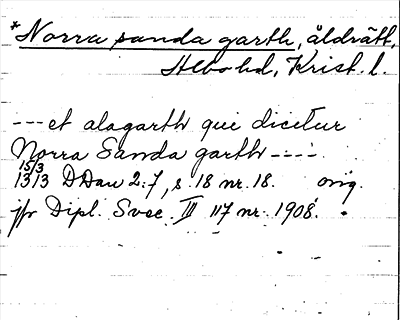 *Norra sanda garth, åldrätt,
Hbo hd, Krist. l.
---et alagarth que dicitur
Norra Sanda garth----
15/3
1313 DDan 2:7, s. 18 nr. 18. orig.
jfr Dipl. Svec. III 117 nr. 1908.